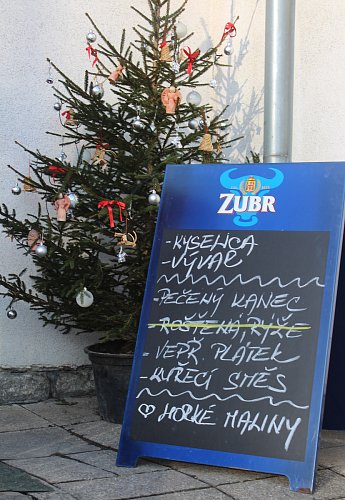 ZUBR
- KYSELICA
- VÝVAR
- PEČENÝ KANEC
- ROŠTĚNÁ, RÝŽE
- VEPŘ. PLÁTEK
- KUŘECÍ SMĚS
♡ HORKÉ MALINY